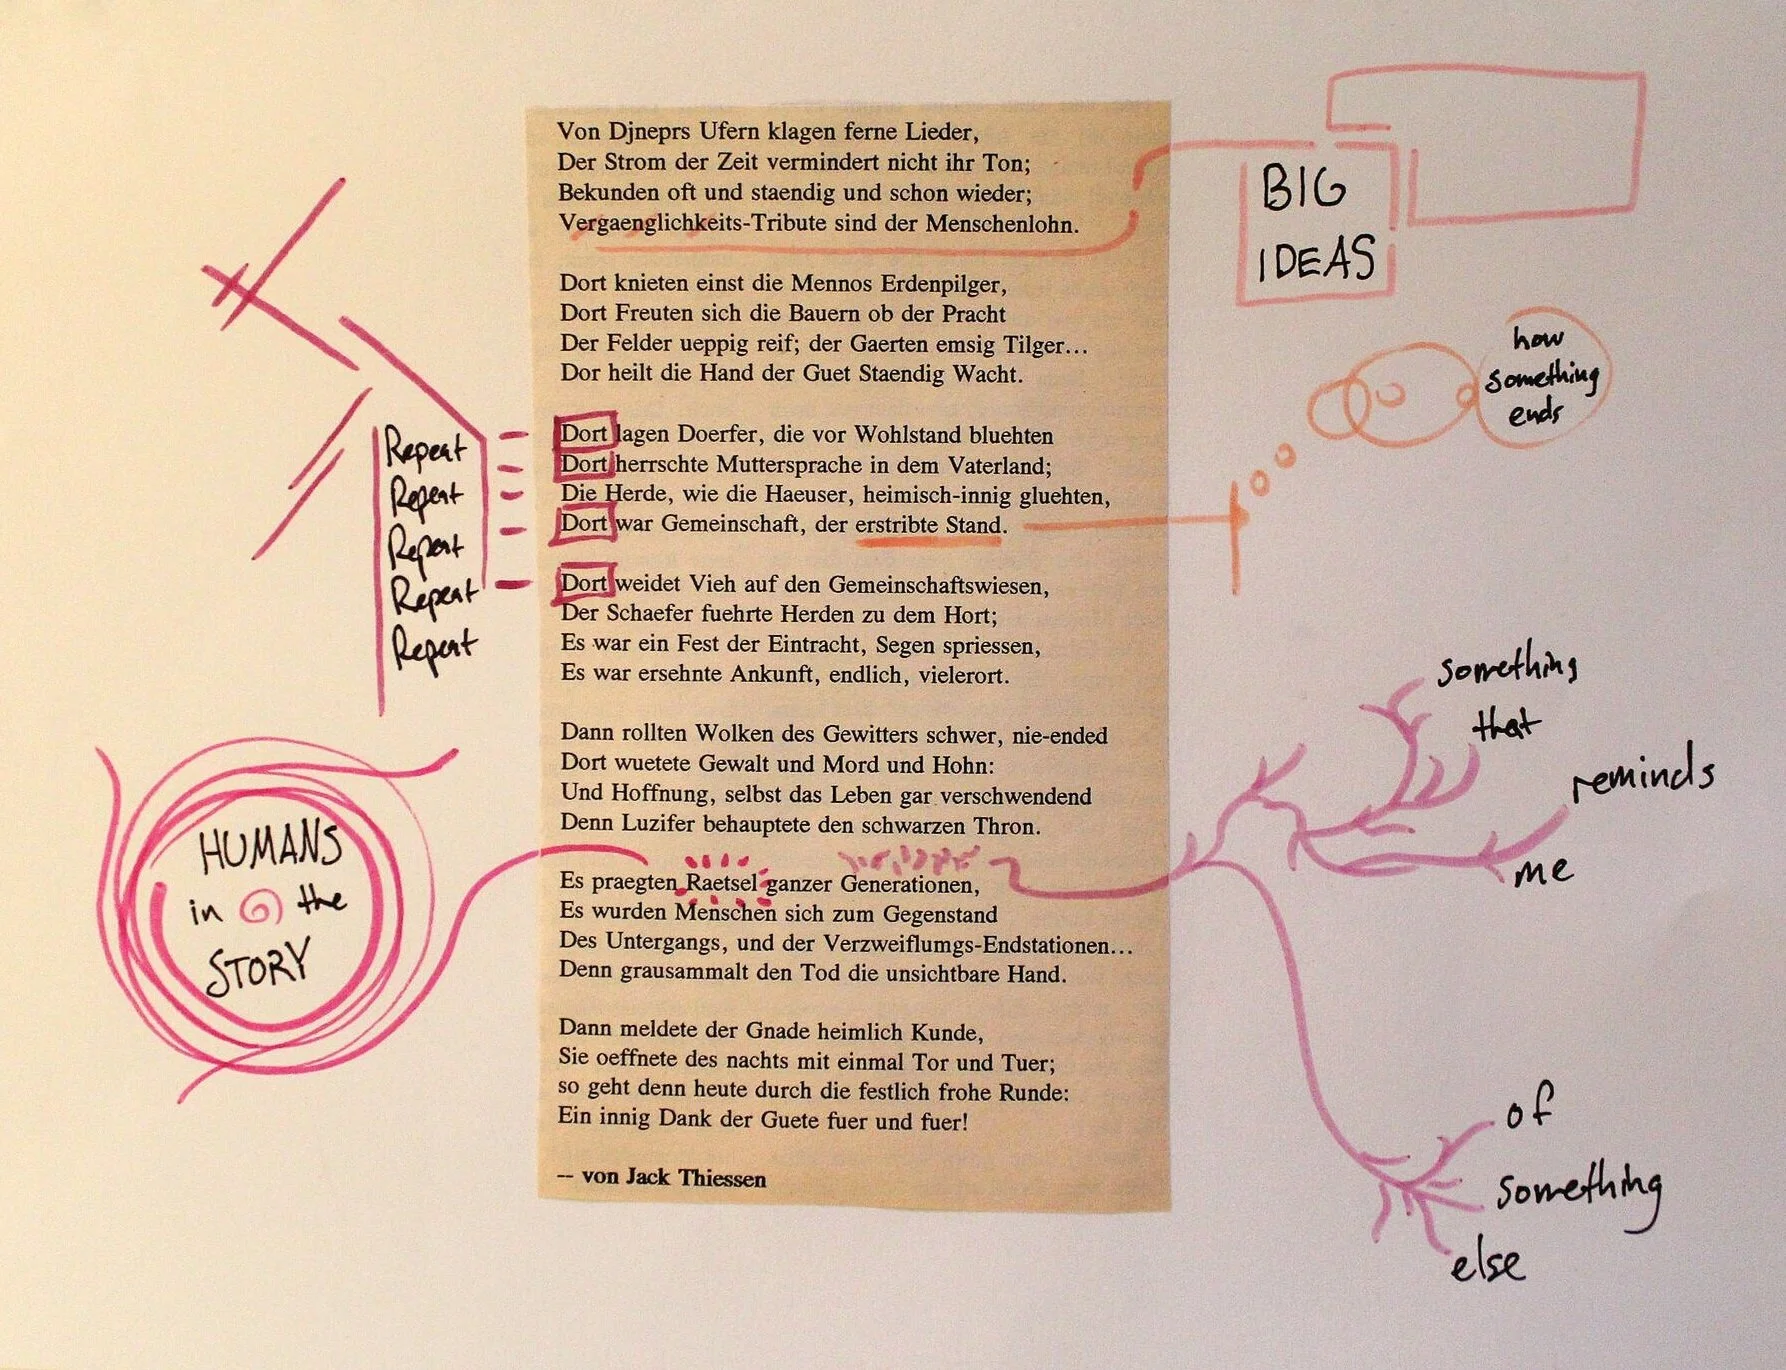 Von Djneprs Ufern klagen ferne Lieder,
Der Strom der Zeit vermindert nicht ihr Ton;
Bekunden oft und staendig und schon wieder;
Vergaenglichkeits-Tribute sind der Menschenlohn.
Dort knieten einst die Mennos Erdenpilger,
Dort Freuten sich die Bauern ob der Pracht
Der Felder ueppig reif; der Gaerten emsig Tilger...
Dor heilt die Hand der Guet Staendig Wacht.
Dort lagen Doerfer, die vor Wohlstand bluehten
Dort herrschte Muttersprache in dem Vaterland;
Die Herde, wie die Haeuser, heimisch-innig gluehten,
Dort war Gemeinschaft, der erstribte Stand.
Dort weidet Vieh auf den Gemeinschaftswiesen,
Der Schaefer fuehrte Herden zu dem Hort;
Es war ein Fest der Eintracht, Segen spriessen,
Es war ersehnte Ankunft, endlich, vielerort.
Dann rollten Wolken des Gewitters schwer, nie-ended
Dort wuetete Gewalt und Mord und Hohn:
Und Hoffnung, selbst das Leben gar verschwendend
Denn Luzifer behauptete den schwarzen Thron.
Es praegten Raetsel ganzer Generationen,
Es wurden Menschen sich zum Gegenstand
Des Untergangs, und der Verzweiflumgs-Endstationen...
Denn grausammalt den Tod die unsichtbare Hand.
Dann meldete der Gnade heimlich Kunde,
Sie oeffnete des nachts mit einmal Tor und Tuer;
so geht denn heute durch die festlich frohe Runde:
Ein innig Dank der Guete fuer und fuer!
-- von Jack Thiessen
Repeat
Repeat
Repeat
Repeat
Repeat
HUMANS
in the
STORY
BIG
IDEAS
how
something
ends
something
that
reminds
me
of
something
else